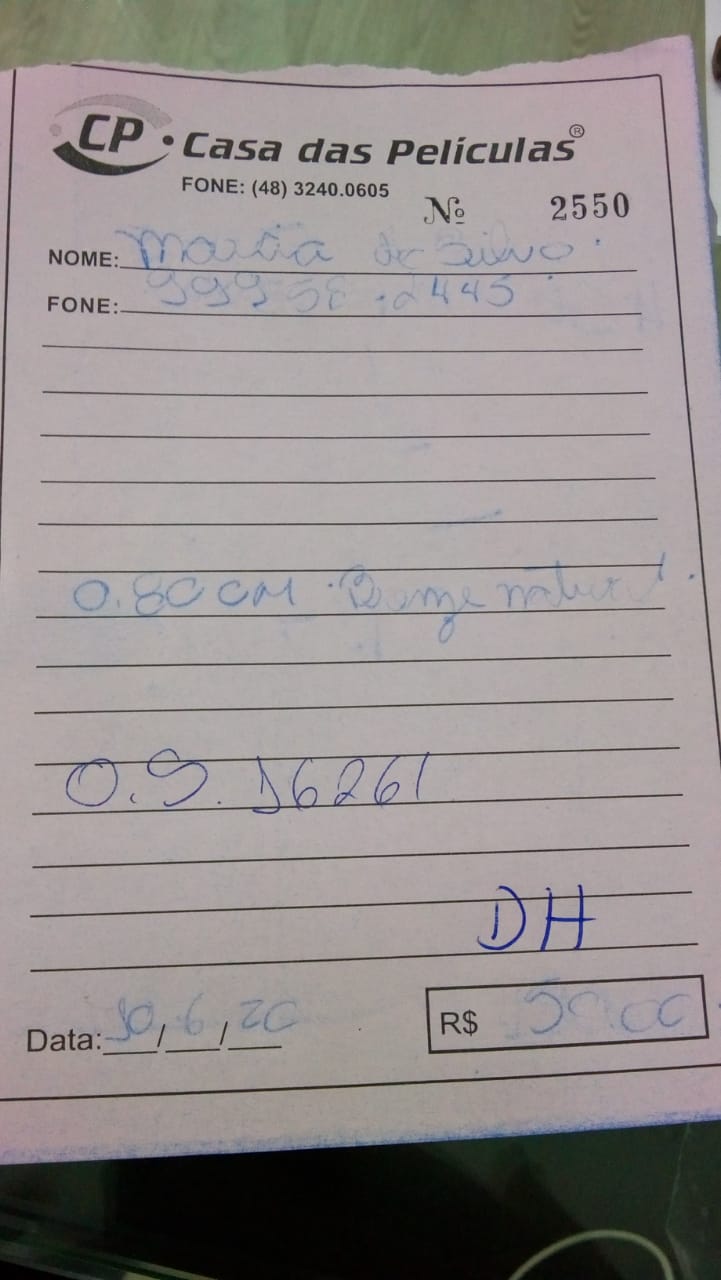 CP • Casa das Películas®
FONE: (48) 3240.0605
Nº 2550
NOME: Maria da Silva
FONE: 99958.2445
0.80 CM
O.S. 16261
DH
Data: 30/6/20
R$ 50.00